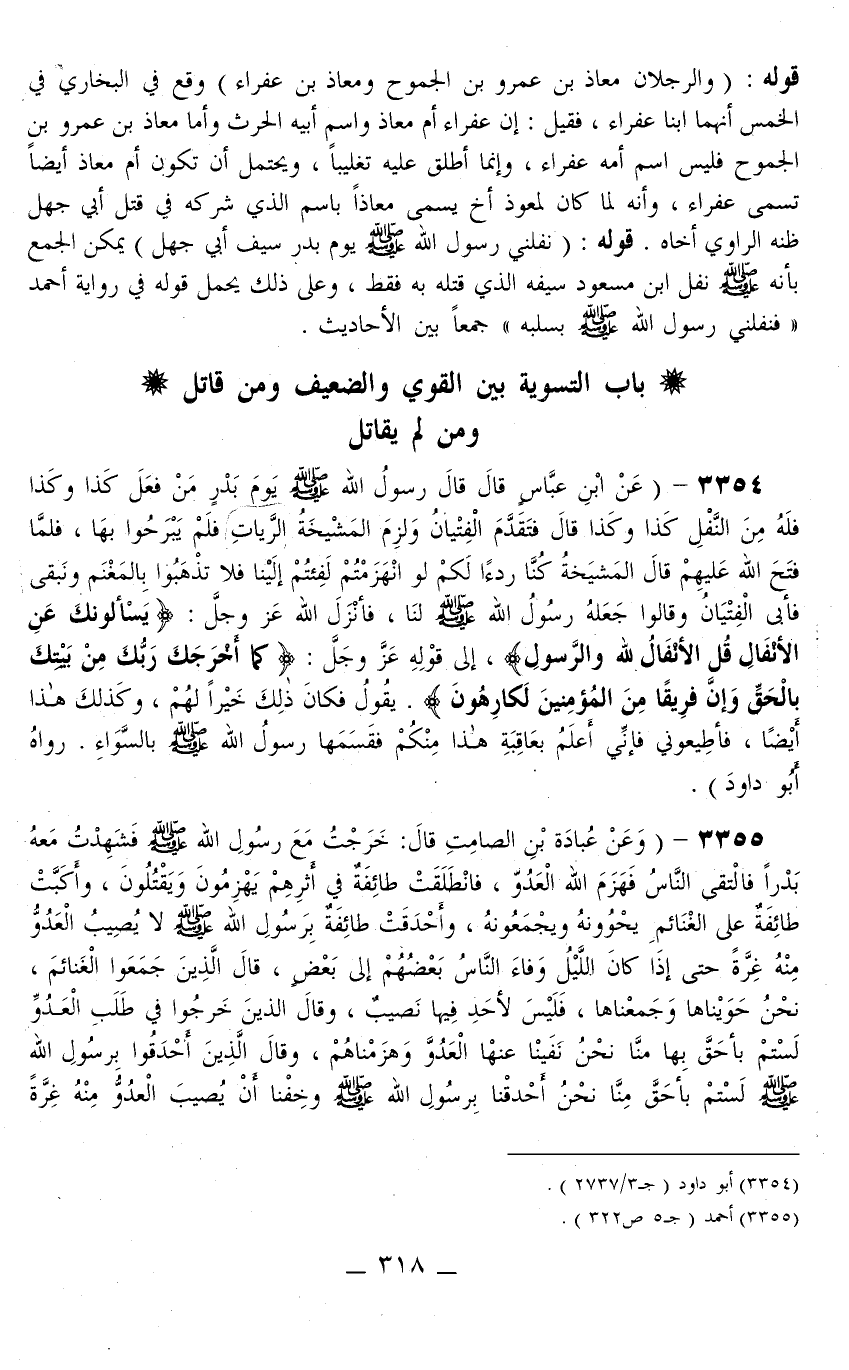 قوله : ( والرجلان معاذ بن عمرو بن الجموح ومعاذ بن عفراء ) وقع في البخاري في
الخمس أنهما ابنا عفراء ، فقيل : إن عفراء أم معاذ واسم أبيه الحرث وأما معاذ بن عمرو بن
الجموح فليس اسم أمه عفراء ، وإنما أطلق عليه تغليباً ، ويحتمل أن تكون أم معاذ أيضاً
تسمى عفراء ، وأنه لما كان لمعوذ أخ يسمى معاذاً باسم الذي شركه في قتل أبي جهل
ظنه الراوي أخاه . قوله : ( نفلني رسول الله ﷺ يوم بدر سيف أبي جهل ) يمكن الجمع
بأنه ﷺ نفل ابن مسعود سيفه الذي قتله به فقط ، وعلى ذلك يحمل قوله في رواية أحمد
« فنفلني رسول الله ﷺ بسلبه » جمعاً بين الأحاديث .
✷ باب التسوية بين القوي والضعيف ومن قاتل ✷
ومن لم يقاتل
٣٣٥٤ – ( عَنْ ابْنِ عبَّاسٍ قالَ قالَ رسولُ الله ﷺ يَومَ بَدْرٍ مَنْ فعَلَ كَذا وكَذا
فلَهُ مِنَ النَّفْلِ كَذا وكَذا قالَ فتَقَدَّمَ الْفِتْيانُ ولزِمَ المَشْيخَةُ الرَّياتِ فلَمْ يَبْرَحُوا بهَا ، فلمَّا
فتَحَ الله عَليهِمْ قالَ المَشيَخةُ كُنَّا ردءًا لَكمْ لو انْهَزَمْتُمْ لَفِئتُمْ إلَيْنا فلا تذْهَبُوا بِالمَغْنَم ونَبقى
فأبى الْفِتْيَانُ وقالوا جَعَلهُ رسُولُ الله ﷺ لنَا ، فأنْزَلَ الله عَز وجلَّ : ﴿ يَسْألونكَ عَنِ
الأنْفَالِ قُلِ الأنْفَالُ لله والرَّسولِ﴾ ، إلى قوْلِهِ عَزَّ وجَلَّ : ﴿ كما أَخْرَجَكَ رَبُّكَ مِنْ بَيْتِكَ
بالْحَقِّ وَإنَّ فرِيقًا مِنَ المُؤمِنينَ لَكارِهُونَ ﴾ . يقُولُ فكانَ ذٰلِكَ خَيْراً لهُمْ ، وكَذلكَ هٰذا
أَيْضًا ، فأطِيعوني فإنِّي أعلَمُ بعَاقِبَةِ هٰذا مِنكُمْ فقَسَمَها رسولُ الله ﷺ بالسَّوَاءِ . رواهُ
أَبُو داودَ ) .
٣٣٥٥ – ( وَعَنْ عُبادَة بْنِ الصامِتِ قالَ: خَرَجْتُ مَعَ رسُولِ الله ﷺ فَشَهِدْتُ مَعهُ
بَدْراً فالْتقى النَّاسُ فَهَزَمَ الله الْعَدُوّ ، فانْطَلَقَتْ طائِفَةٌ في أَثرِهِمْ يَهْزِمُونَ وَيَقْتُلُونَ ، وأَكَبَّتْ
طائِفَةٌ على الْغَنائم يحْوُونهُ ويجْمَعُونهُ ، وأَحْدَقَتْ طائِفةٌ بِرَسُولِ الله ﷺ لا يُصِيبُ العَدُوُّ
مِنْهُ غِرَّةً حتى إذَا كانَ اللَّيْلُ وَفاءَ النَّاسُ بَعْضُهُمْ إلى بَعْضٍ ، قالَ الَّذِينَ جَمَعَوا الْغَنائمَ ،
نحْنُ حَوَيْناها وَجَمعْناها ، فَلَيْسَ لأحَدٍ فِيها نَصيبٌ ، وقالَ الذينَ خَرجُوا في طَلَبِ الْعَدُوِّ
لَستْمْ بأحَقَّ بِها منَّا نحْنُ نَفَيْنا عنهْا الْعَدُوَّ وَهزَمْناهُمْ ، وقالَ الَّذِينَ أَحْدَقُوا بِرسُولِ الله
ﷺ لَسْتمْ بأحَقَّ مِنَّا نحْنُ أَحْدقْنا بِرسُولِ الله ﷺ وخِفْنا أَنْ يُصيبَ الْعدُوُّ مِنْهُ غِرَّةً
(٣٣٥٤) أبو داود ( جـ٢٧٣٧/٣ ) .
(٣٣٥٥) أحمد ( جـ٥ ص٣٢٢ ) .
– ٣١٨ –